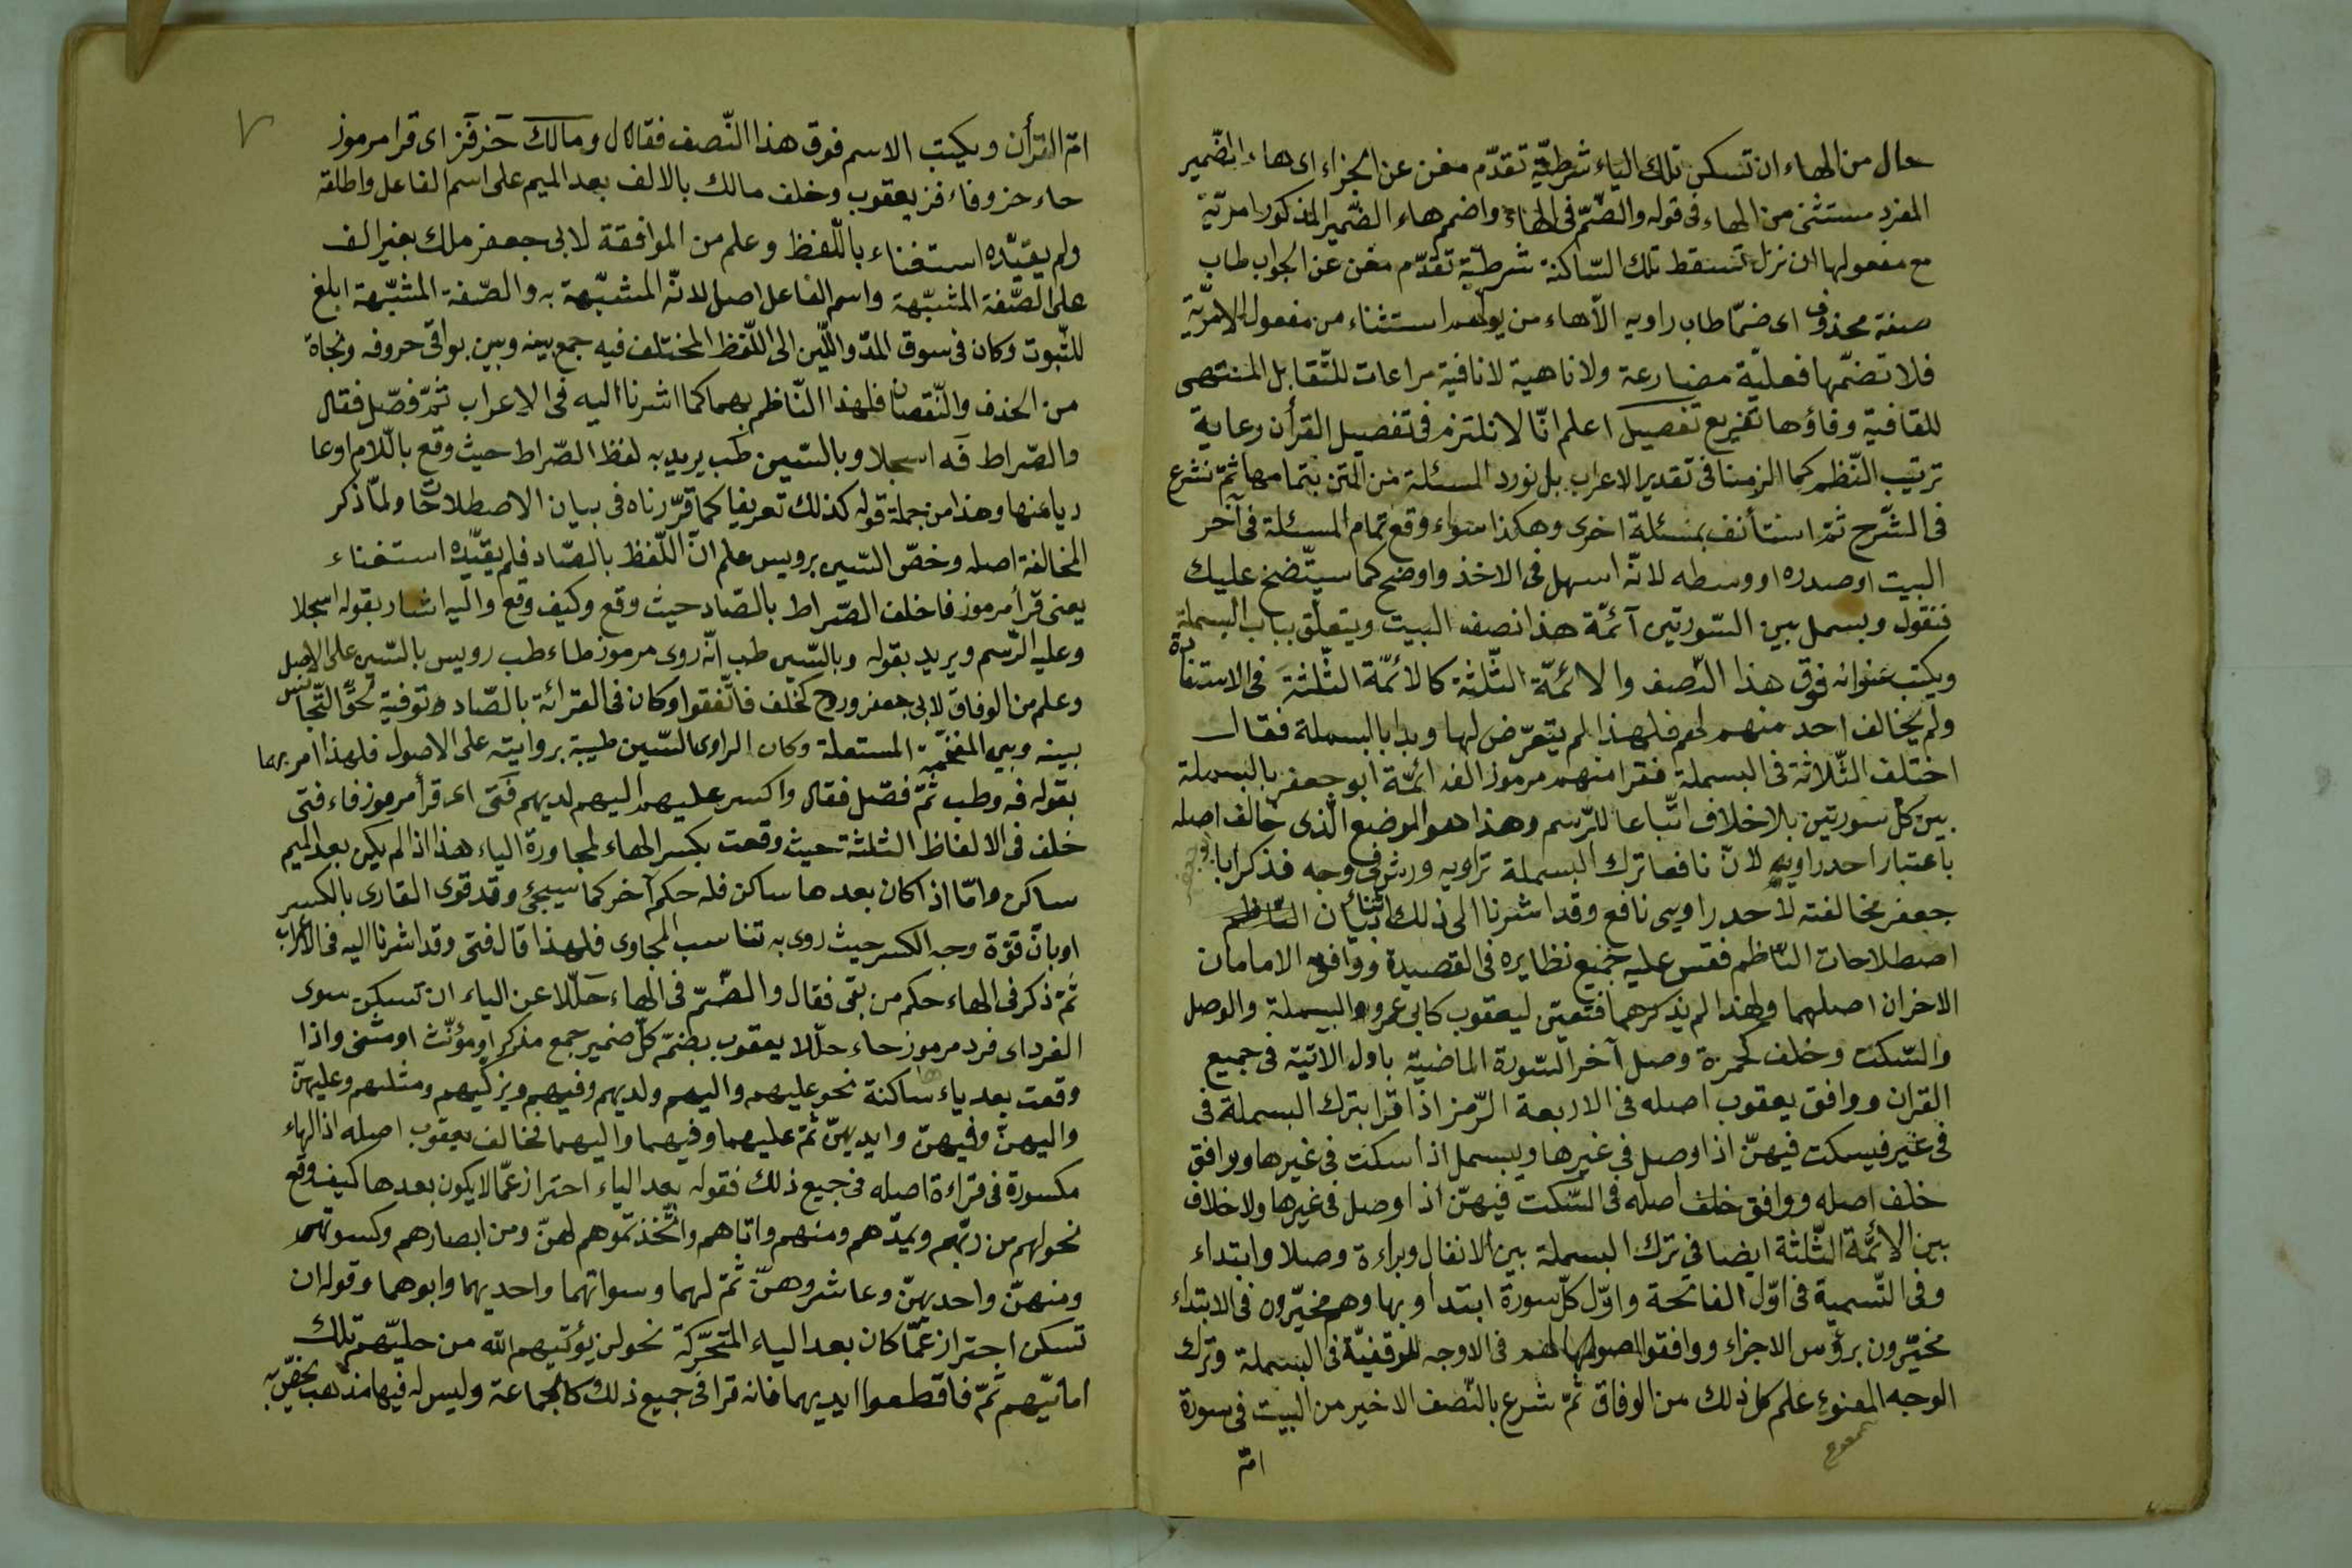 حال من الهاء ان تسكن تلك الياء شرطيّة تقدّم مغن عن الجزاء اى هاء الضّمير
المفرد مستثنى من الهاء فى قوله والضّمّ فى الهاء واضمم هاء الضّمير المذكور امريّة
مع مفعولها ان نزل تسقط تلك السّاكنة شرطيّة تقدّم مغن عن الجواب طاب
صفة محذوف اى ضمّا طاب راويه الّا هاء من يولهم استثناء من مفعول الامريّة
فلا تضمّها فعليّة مضارعة ولا ناهية لا نافية مراعات للتّقابل المنتهى
للقافية وفاؤها تفريع تفصيل اعلم انّا لا نلتزم فى تفصيل القرأن رعاية
ترتيب النّظم كما الزمنا فى تقدير الاعراب بل نورد المسئلة من المتن بتمامها ثمّ نشرع
فى الشّرح ثمّ استأنف بمسئلة اخرى وهكذا سواء وقع تمام المسئلة فى آخر
البيت او صدره او وسطه لانّه اسهل فى الاخذ واوضح كما سيتّضح عليك
فنقول وبسمل بين السّورتين آئمّة هذا نصف البيت ويتعلّق بباب البسملة
ويكتب عنوانه فوق هذا النّصف والائمّة الثّلثة كالائمّة الثّلثة فى الاستعاذة
ولم يخالف احد منهم لهم فلهذا لم يتعرّض لها وبدا بالبسملة فقال
اختلف الثّلاثة فى البسملة فقرا منهم مرموز الف ائمّة ابو جعفر بالبسملة
بين كلّ سورتين بلا خلاف اتّباعا للرّسم وهذا هو الموضع الّذى خالف اصله
باعتبار احد راويه لانّ نافعا ترك البسملة تراويه ورش فى وجه فذكر ابا
جعفر مخالفته لاحد راويى نافع وقد اشرنا الى ذلك اثناء بيان
اصطلاحات النّاظم فقس عليه جميع نظايره فى القصيدة ووافق الامامان
الاخران اصلهما ولهذا لم يذكرهما فتعيّن ليعقوب كابى عمرو البسملة والوصل
والسّكت وخلف كحمزة وصل آخر السّورة الماضية باول الاتية فى جميع
القران ووافق يعقوب اصله فى الاربعة الزّمر اذا قرا بترك البسملة فى
فى غير فيسكت فيهنّ اذا وصل فى غيرها ويبسمل اذا سكت فى غيرها ووافق
خلف اصله ووافق خلف اصله فى السّكت فيهنّ اذا وصل فى غيرها ولا خلاف
بين الائمّة الثّلثة ايضا فى ترك البسملة بين الانفال وبراءة وصلا وابتداء
وفى التّسمية فى اوّل الفاتحة واوّل كلّ سورة ابتدأوا بها وهم مخيّرون فى الابتداء
مخيّرون برؤس الاجزاء ووافقوا اصولهم فى الاوجه الموقفيّة فى البسملة وترك
الوجه الممنوع علم كل ذلك من الوفاق ثمّ شرع بالنّصف الاخير من البيت فى سورة
امّ
٧
امّ القرأن ويكتب الاسم فوق هذا النّصف فقال ومالك حز فز اى قرا مرموز
حاء حز وفاء فز يعقوب وخلف مالك بالالف بعد الميم على اسم الفاعل واطلقه
ولم يقيّده استغناء باللّفظ وعلم من الموافقة لابى جعفر ملك بغير الف
على الصّفة المشبّهة واسم الفاعل اصل لانّه المشبّهة به والصّفة المشبّهة ابلغ
للثّبوت وكان فى سوق المدّ واللّين الى اللّفظ المختلف فيه جمع بينه وبين بواقى حروفه ونجاة
من الحذف والنّقصان فلهذا النّاظم بهما كما اشرنا اليه فى الاعراب ثمّ فصّل فقال
والصّراط فه اسجلا وبالسّين طب يريد به لفظ الصّراط حيث وقع باللّام او عا
ريا عنها وهذا من جملة قوله كذلك تعريفا كما قرّرناه فى بيان الاصطلاحات ولمّا ذكر
المخالفة اصله وخصّ السّين برويس علم انّ اللّفظ بالصّاد فلم يقيّده استغناء
يعنى قرأ مرموز فا خلف الصّراط بالصّاد حيث وقع وكيف وقع واليه اشار بقوله اسجلا
وعليه الرّسم ويريد بقوله وبالسّين طب انّه روى مرموز طاء طب رويس بالسّين على الاصل
وعلم من الوفاق لابى جعفر وروح كخلف فاتّفقوا وكان فى القرائة بالصّاد توفية حقّ التّجانس
بينه وبين المفخّمة المستعلة وكان الراوى السّين طيبة بروايته على الاصول فلهذا امر بهما
بقوله فه وطب ثمّ فصّل فقال واكسر عليهم اليهم لديهم فتى اى قرأ مرموز فاء فتى
خلف فى الالفاظ الثلثة حيث وقعت بكسر الهاء لمجاورة الياء هذا اذا لم يكن بعد الميم
ساكن وامّا اذا كان بعدها ساكن فله حكم آخر كما سيجئ وقد قوى القارى بالكسر
او بانّ قوّة وجه الكسر حيث روى به تناسب المجاوى فلهذا قال فتى وقد اشرنا اليه فى الاعراب
ثمّ ذكر فى الهاء حكم من بقى فقال والضّمّ فى الهاء حلّلا عن الياء ان تسكن سوى
الفرد اى فرد مرموز حاء حلّلا يعقوب بضمّ كلّ ضمير جمع مذكر او مؤنّث او مثنى واذا
وقعت بعد ياء ساكنة نحو عليهم واليهم ولديهم وفيهم ويزكّيهم ومثلهم وعليهنّ
واليهنّ وفيهنّ وايديهنّ ثمّ عليهما وفيهما واليهما فخالف يعقوب اصله اذ الهاء
مكسورة فى قراءة اصله فى جميع ذلك فقوله بعد الياء احتراز عمّا لا يكون بعدها كيف وقع
نحو لهم من ربّهم ويمدّهم ومنهم واتاهم واتّخذتموهم لهنّ ومن ابصارهم وكسوتهم
ومنهنّ واحديهنّ وعاشروهنّ ثمّ لهما وسواتهما واحديهما وابوهما وقوله ان
تسكن احتراز عمّا كان بعد الياء المتحرّكة نحو لن يؤتيهم الله من حليّهم تلك
امانيّهم ثمّ فاقطعوا ايديهما فانه قرا فى جميع ذلك كالجماعة وليس له فيها مذهب يخصّ به